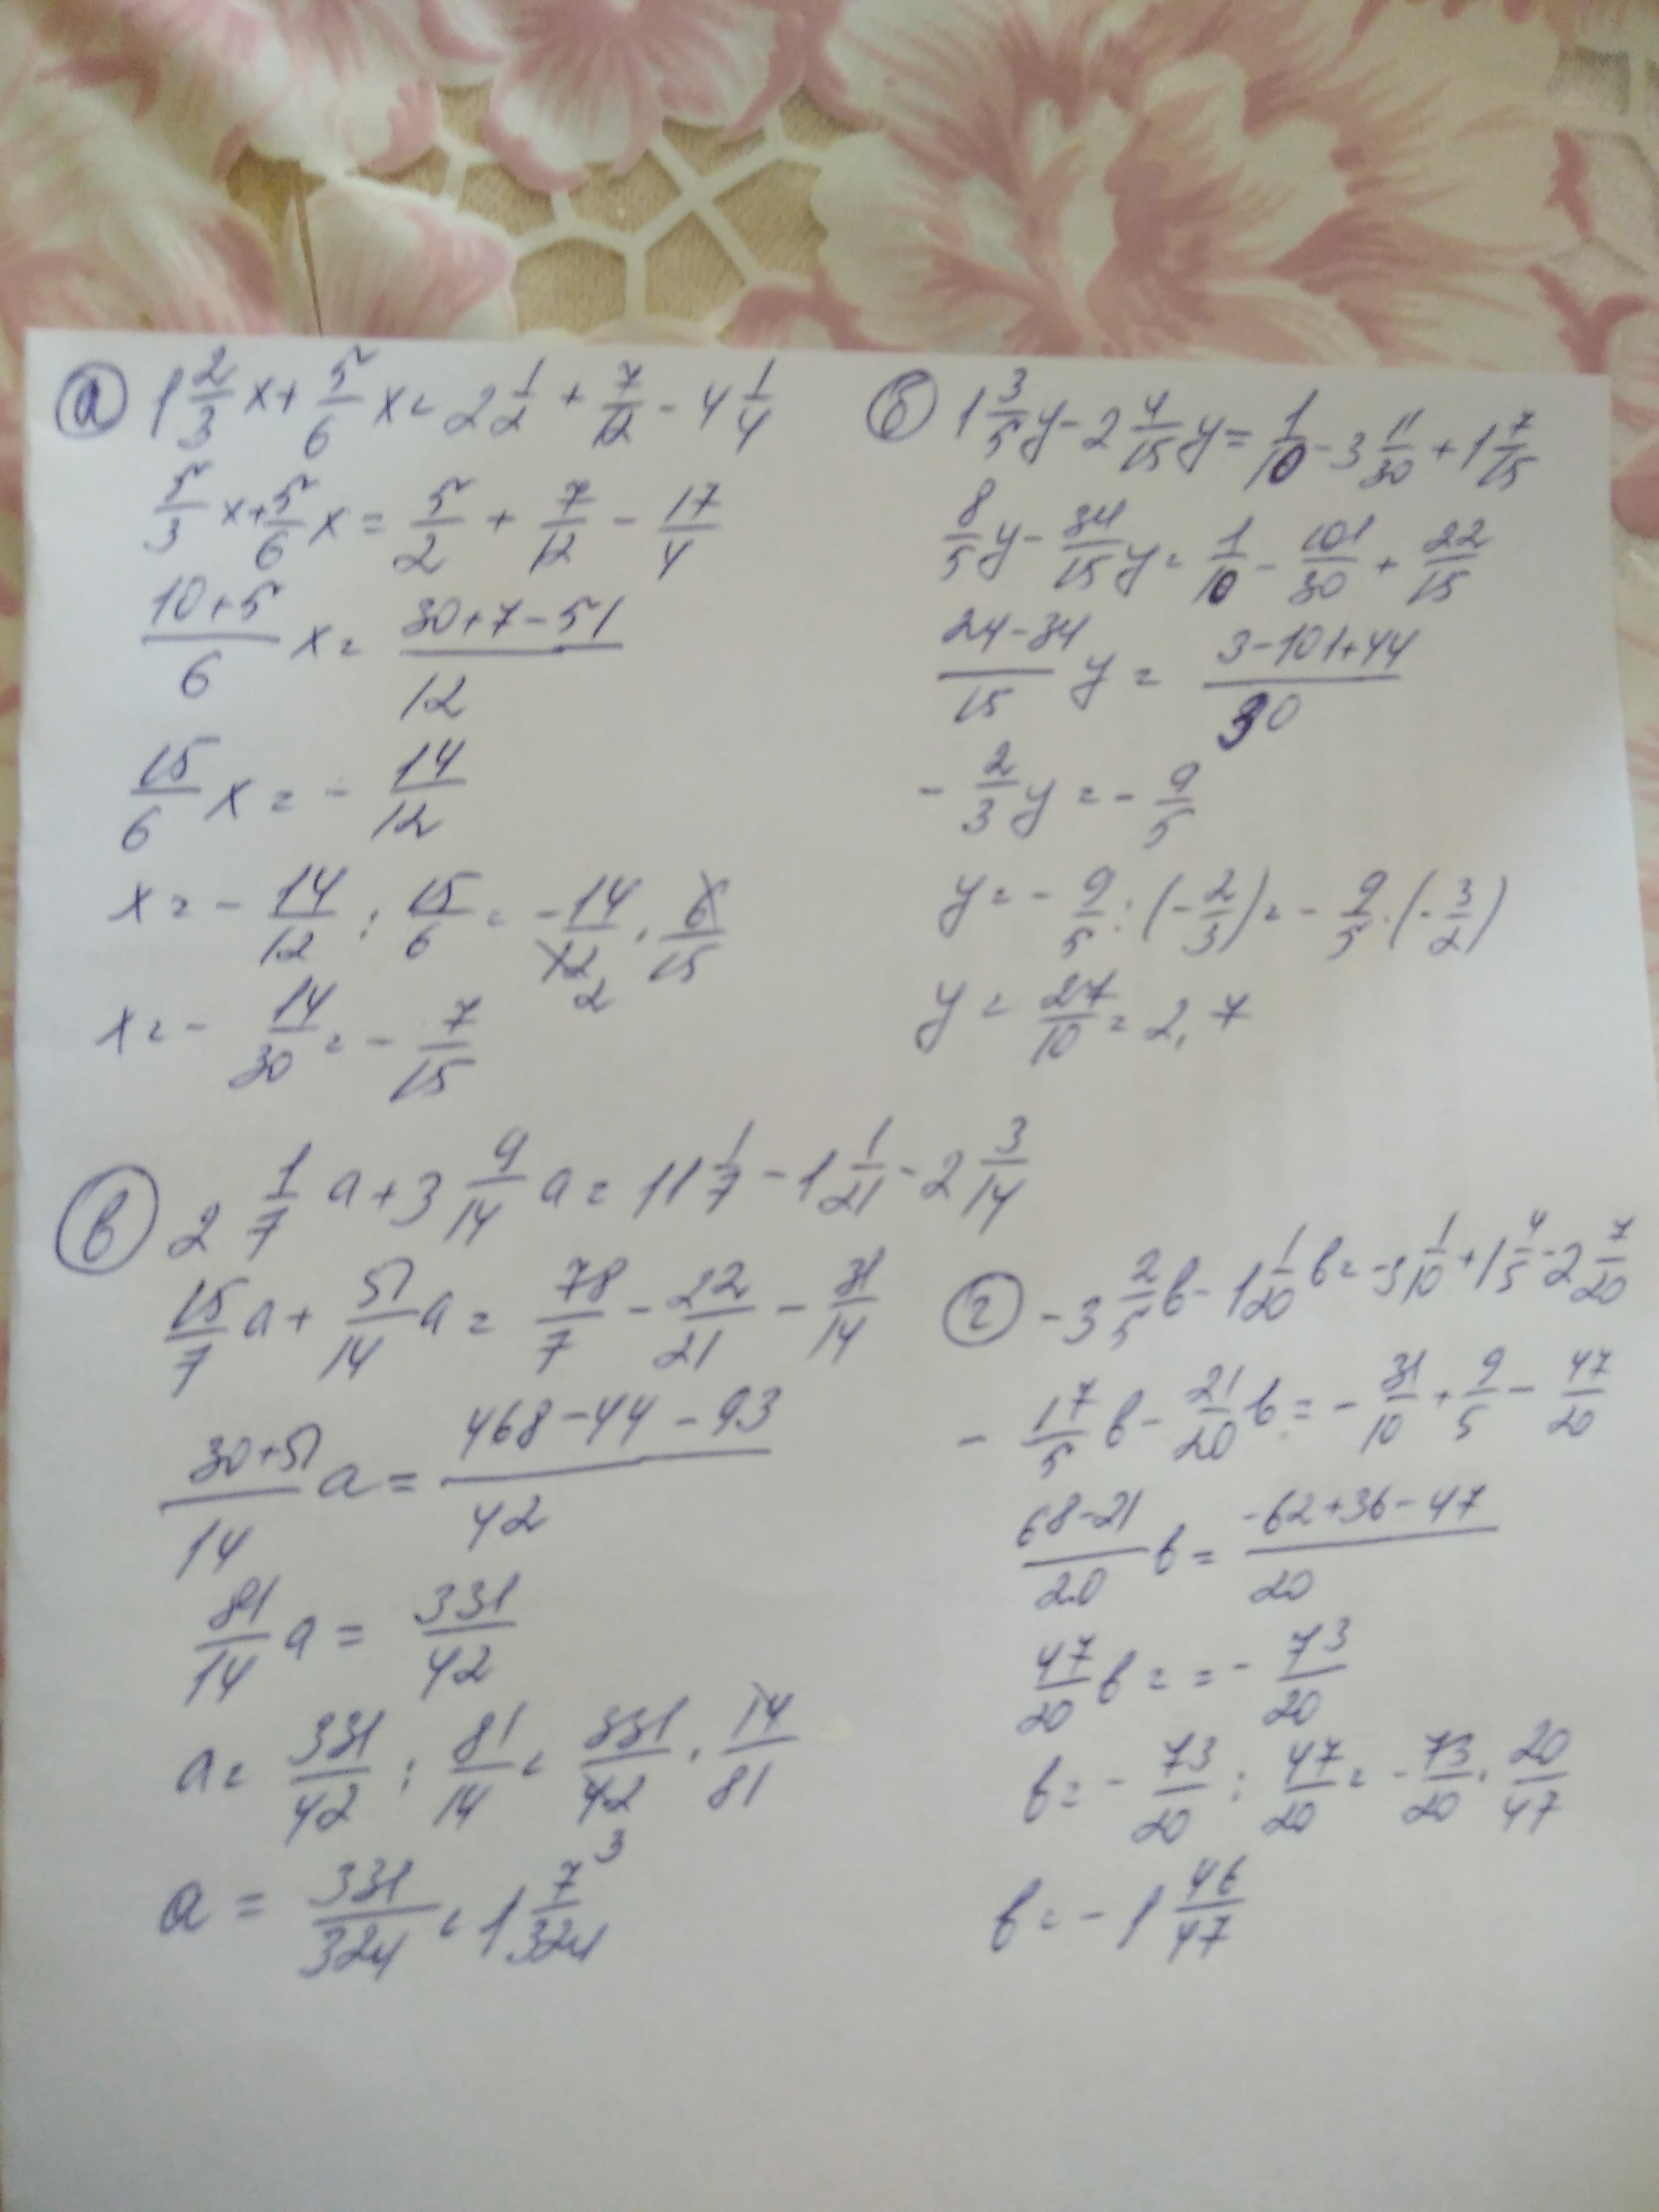 а) 1 2/3 x + 5/6 x = 2 1/2 + 7/12 - 4 1/4
5/3 x + 5/6 x = 5/2 + 7/12 - 17/4
(10+5)/6 x = (30+7-51)/12
15/6 x = - 14/12
x = - 14/12 : 15/6 = -14/12 2 · 6/15
x = - 14/30 = - 7/15
б) 1 3/5 y - 2 4/15 y = 1/10 - 3 11/30 + 1 7/15
8/5 y - 34/15 y = 1/10 - 101/30 + 22/15
(24-34)/15 y = (3-101+44)/30
- 2/3 y = - 9/5
y = - 9/5 : (- 2/3) = - 9/5 · (- 3/2)
y = 27/10 = 2,7
в) 2 1/7 a + 3 9/14 a = 11 1/7 - 1 1/21 - 2 3/14
15/7 a + 51/14 a = 78/7 - 22/21 - 31/14
(30+51)/14 a = (468-44-93)/42
81/14 a = 331/42
a = 331/42 : 81/14 = 331/42 3 · 14/81
a = 331/324 = 1 7/324
г) -3 2/5 в - 1 1/20 в = -3 1/10 + 1 4/5 - 2 7/20
- 17/5 в - 21/20 в = - 31/10 + 9/5 - 47/20
(68-21)/20 в = (-62+36-47)/20
47/20 в = = - 73/20
в = - 73/20 : 47/20 = - 73/20 · 20/47
в = - 1 46/47